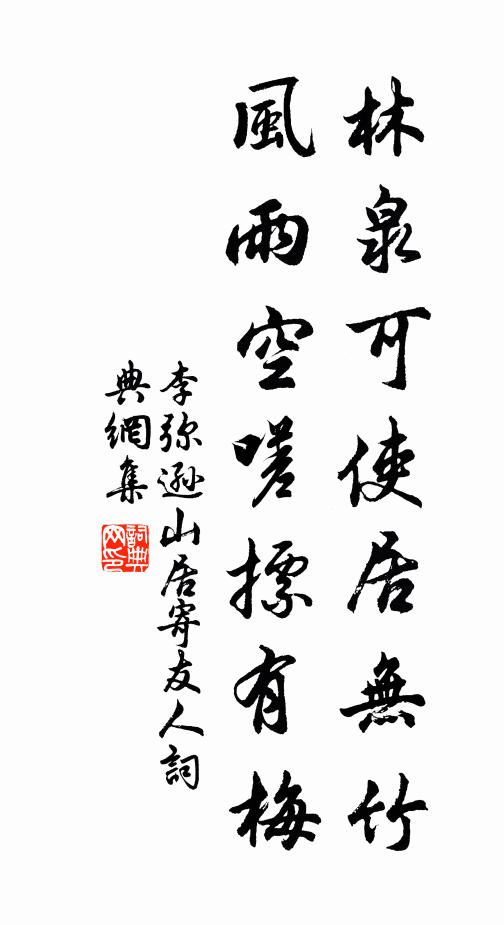 林泉可使居無竹
風雨空嗟摽有梅
李弥遜山居寄友人詞
典網集
詞典
网印